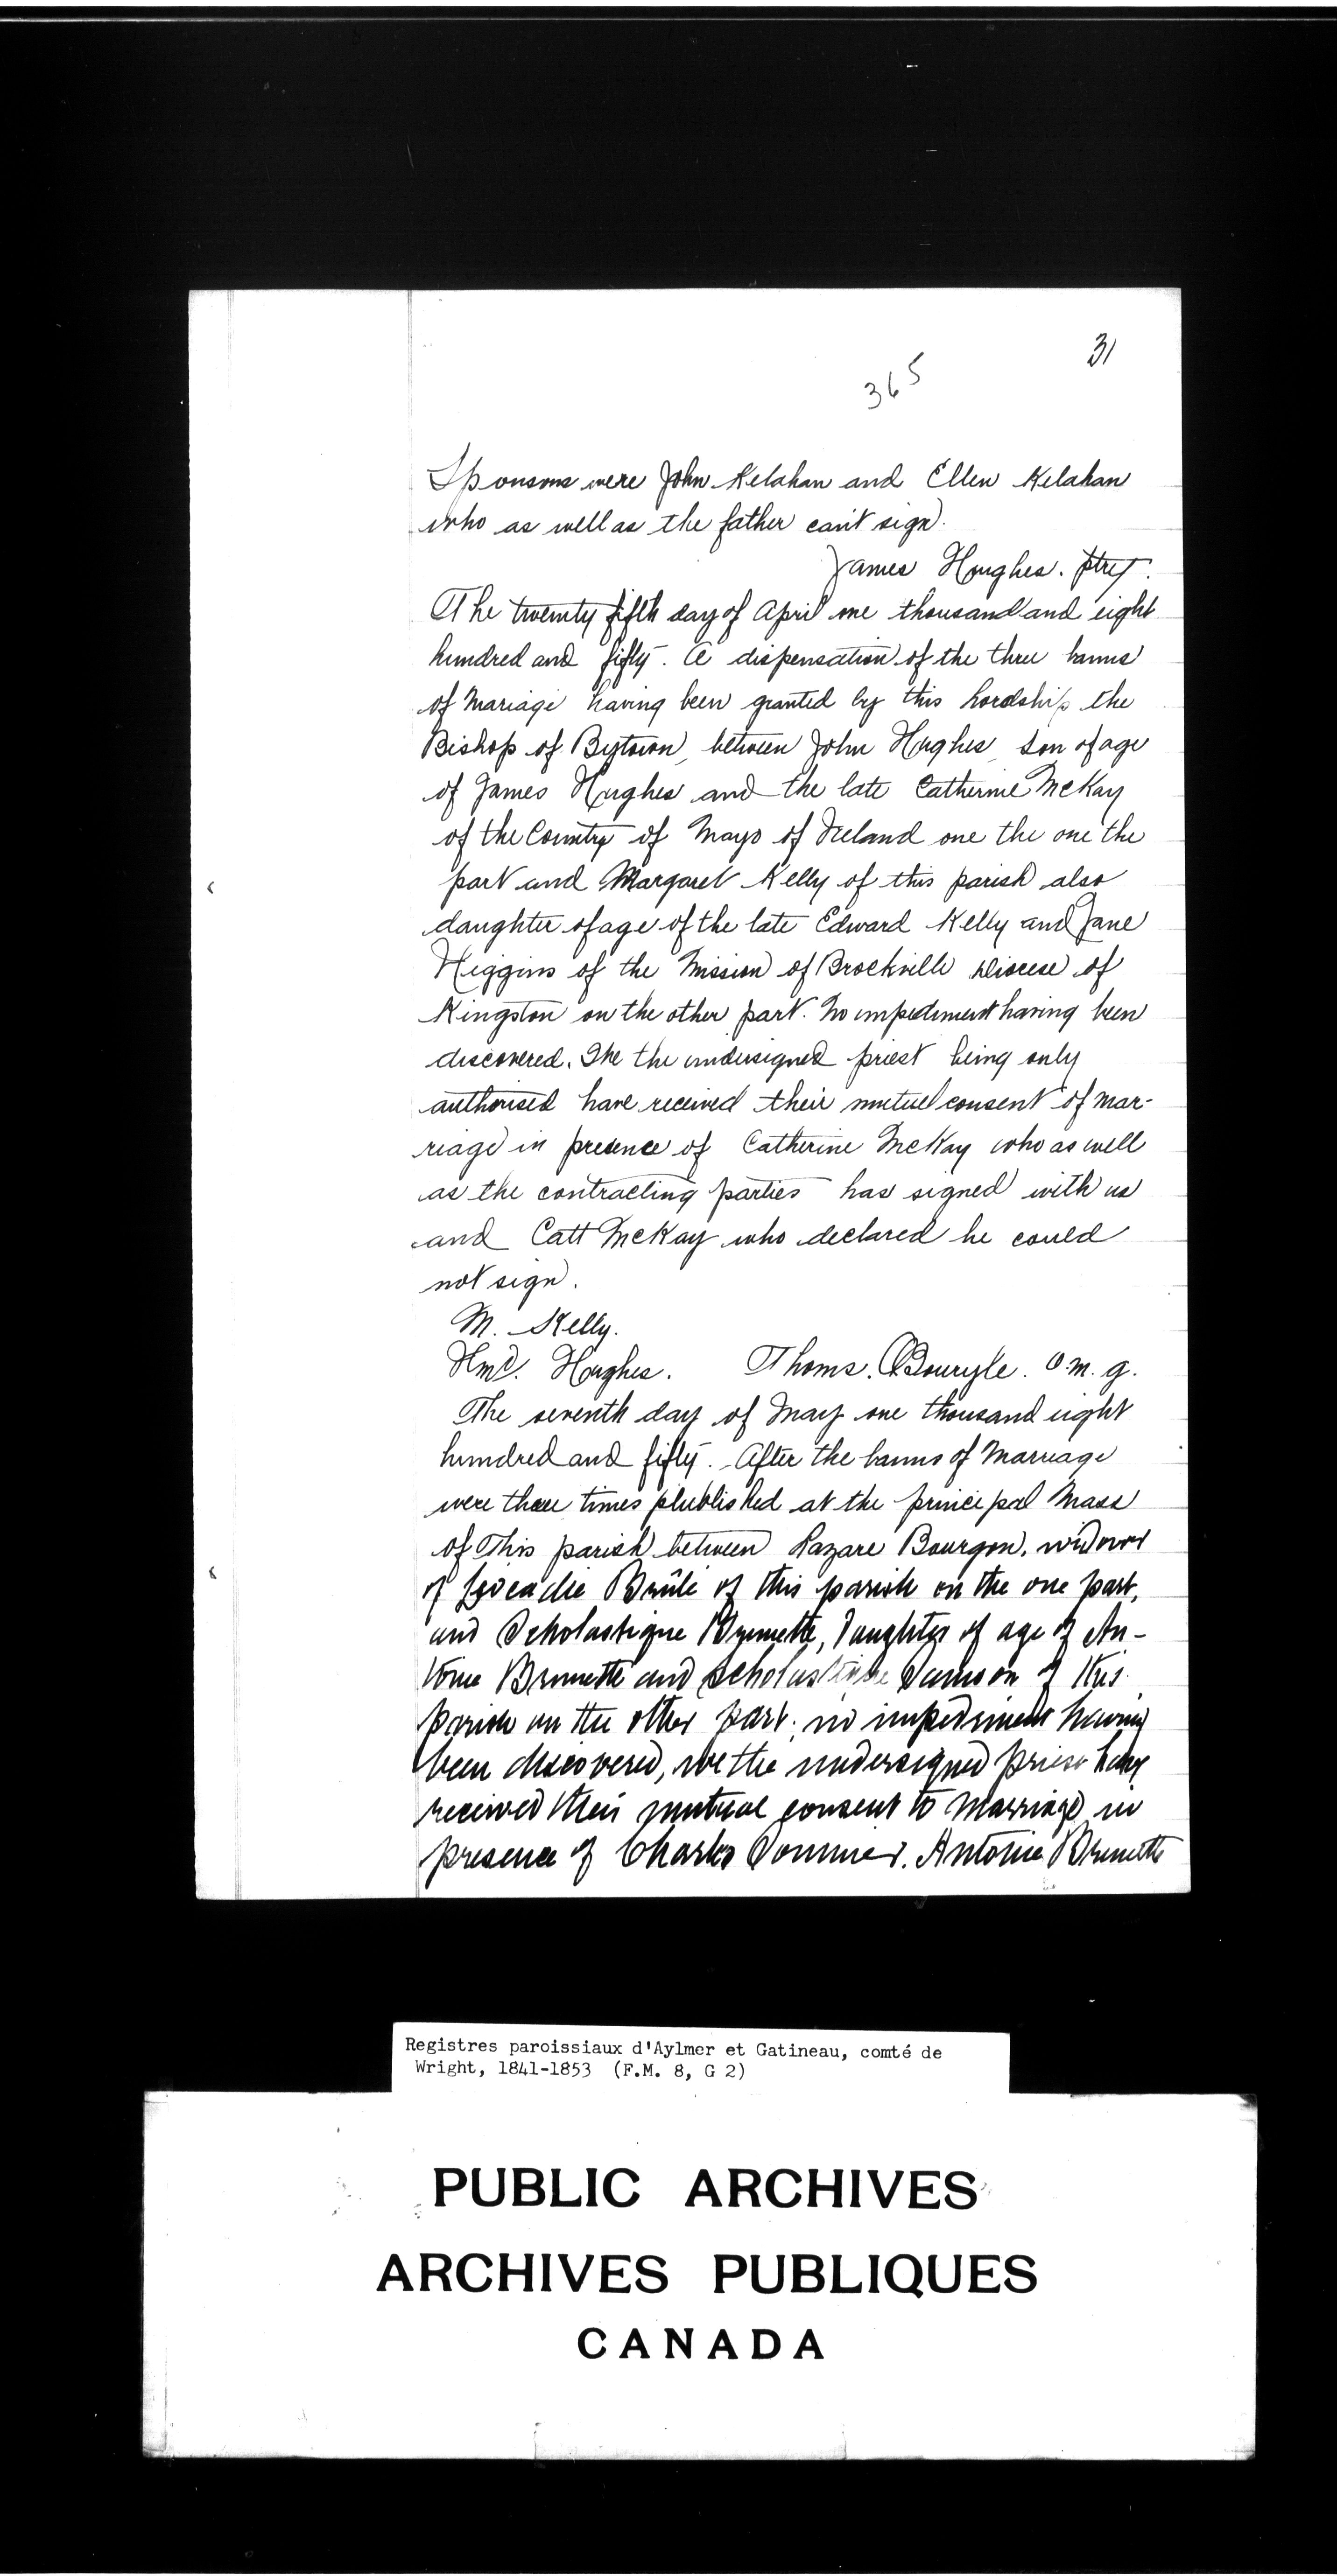 31
365
Sponsons were John Kelahan and Ellen Kelahan
who as well as the father can't sign.
James Hughes. ptry.
The twenty fifth day of April one thousand and eight
hundred and fifty. A dispensation of the three banns
of Mariage having been granted by this Lordship the
Bishop of Bytown, between John Hughes, son of age
of James Hughes and the late Catherine McKay
of the Country of Mayo of Ireland one the one the
part and Margaret Kelly of this parish also
daughter of age of the late Edward Kelly and Jane
Higgins of the Mission of Brockville Diocese of
Kingston on the other part. No impediment having been
discovered. We the undersigned priest being only
authorised have received their mutuel consent of mar-
riage in presence of Catherine McKay who as well
as the contracting parties has signed with us
and Catt McKay who declared he could
not sign.
M. Kelly.
Hughes. Thoms. O.m.g.
The seventh day of May one thousand eight
hundred and fifty. After the banns of Marriage
were three times plublished at the principal Mass
of This parish between Lazare Bourgon, widower
of Leocadie Brûlé of this parish on the one part,
and Scholastique Brunette, Daughter of age of An-
toine Brunette and Scholastique Samson of this
parish on the other part; no impediment having
been discovered, we the undersigned priest have
received their mutual consent to Marriage in
presence of Charles Antoine Brunette
Registres paroissiaux d'Aylmer et Gatineau, comté de
Wright, 1841-1853 (F.M. 8, G 2)
PUBLIC ARCHIVES
ARCHIVES PUBLIQUES
CANADA